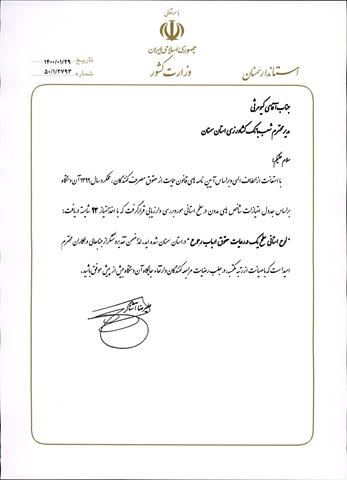 بسمه تعالی
جمهوری اسلامی ایران
وزارت کشور
استاندار سمنان
تاریخ ۱۴۰۰/۰۱/۲۹
شماره ۵۰/۱/۲۷۹۳
جناب آقای کیومرثی
مدیر محترم شعب بانک کشاورزی استان سمنان
سلام علیکم؛
با استعانت از الطاف الهی و براساس آیین نامه های قانون حمایت از حقوق مصرف کنندگان، عملکرد سال ۱۳۹۹ آن دستگاه
براساس جدول امتیازات شاخص های مدون در سطح استانی مورد بررسی و ارزیابی قرار گرفت که با اخذ امتیاز ۹۳ شایسته دریافت؛
"لوح استانی سطح یک در رعایت حقوق ارباب رجوع" در استان سمنان شده اید. لذا ضمن تقدیر و تشکر از جنابعالی و همکاران محترم
امید است که با صیانت از رتبه مکتسبه در جلب رضایت مراجعه کنندگان و ارتقاء جایگاه آن دستگاه بیش از پیش موفق باشید.
علیرضا آشناگر